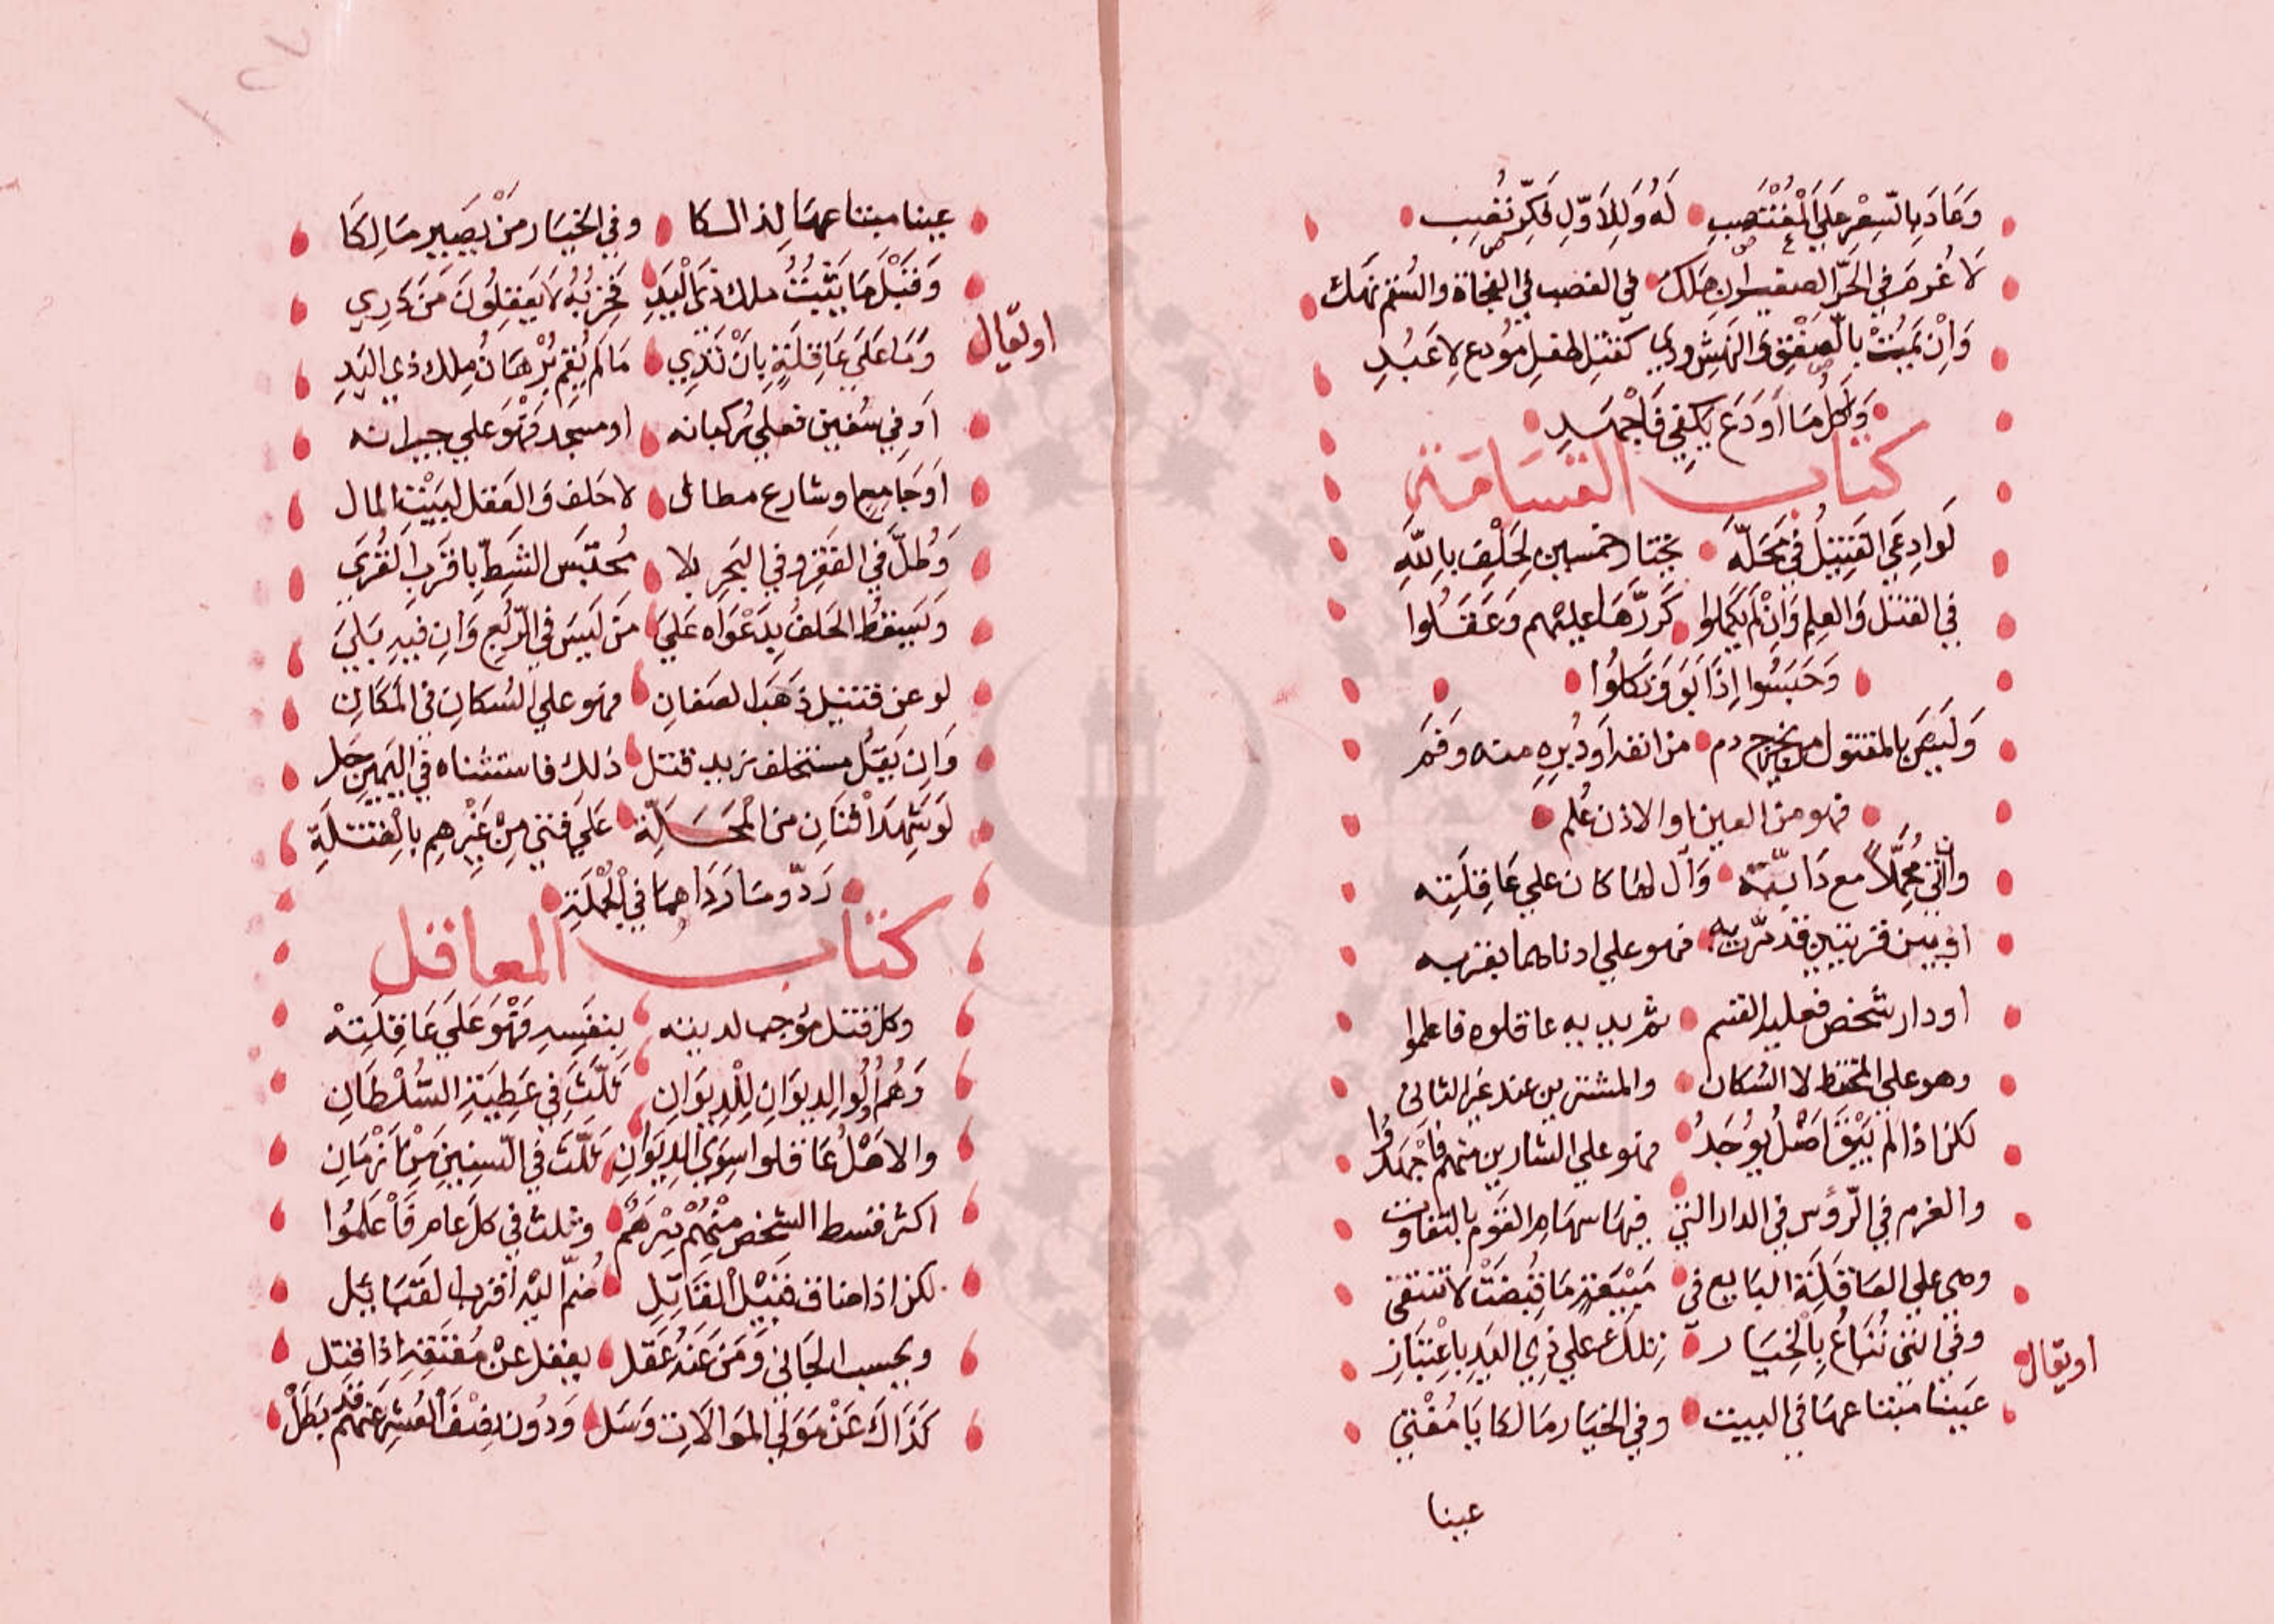 وَعَادَ بِالسِّعْرِ عَلَى الْمُغْتَصِبِ لَهُ وَلِلْأَوَّلِ
لَا غُرمَ فِي الحُرّ الصغير إن هلك في الغصب في الفجاة والسقم نهك
وَاِنْ يَمُتْ بِالصَّعْقِ وَالنهش ودي كقتل طفل مودع لا عَبْدِ
وَكُلُّ مَا أَوْدَعَ يَكْفِي فَاجْهَدِ
كتاب القسامة
لَو ادعي القَتِيلُ فِي مَحَلّه يختار خمسين لِحَلْفٍ بِاللهِ
في القتل وَالعِلم وَاِنْ لم يكملوا كَرَّرَهَا عليهم وَعَقَلُوا
وَحَبَسُوا اِذَا اَبَوْ وَنَكَلُوا
وَلَيسَ بالمقتول من يخرج دم من انفه أو دُبُرِهِ منه وفم
فهو من العين او الاذن عُلم
وان مُحَمَّلاً مع دَابّته وَآل لها كان علي عَاقِلَتِه
او بين قريتين قد مَرّت به فهو علي ادناهما بقربه
او دار شخص فعليه القسم ثم يديه عاقلوه فاعلموا
وهو علي المختط لا السُكان والمشترين عند غير الثاني
لكن اذا لم يَبْقَ اَصْلٌ يُوجَدُ فهو علي الشارين منهم فَاجْهَدُوا
والغرم في الرّؤس في الدار التي فيها سهام القوم بالتفاوت
وهي علي العَاقِلَة البايع في مَبِيعَةٍ مَا قُبِضَتْ لا تنتفي
وفي التي تُبَاعُ بِالْخِيَار تلك علي ذِي اليَدِ بِاعْتِبَارِ
او يقال
عَينا مَبتنا عهَا في البيت وفي الخيار مَالكا يَا مُفْتِي
عينا
عينا مبتنا عهَا لِذالكا وفي الخِيَار مَنْ يَصِيرُ مَالِكَا
وَقَبْلَ مَا يَثْبُتُ ملك ذي الْيَدِ لَا يَعقِلُونَ مَن دَرِي
او يقال
وَمَا عَلَي عَاقِلَةٍ بِاَنْ تَدِي مَا لم يُقِمْ بُرْهَانُ مِلك ذي اليَدِ
اَوفي سفين فعلي رُكبانه او مسجد فَهْوَ علي جيرانه
اَو جَامِعٍ او شارع لا حَلف وَالعَقل لِبَيْتِ المال
وَطُلَّ في القَفْر وفي البَحر بلا مُحتبس الشطّ بِاقرب القُرَي
وَيَسقُطُ الحَلفُ بِدَعْوَاه عَلَي مَن لَيسَ فِي الرّبْع وَان فيه بَلَي
لو عن قتيل ذَهَبَ الصفانِ فهو علي السُكانِ في المَكَانِ
وَاِن يَقُل مستحلف زيد قتل ذلك فاستثناه في اليَمِينِ حَل
لَو شَهِدَ اثْنَانِ مِنَ الْمَحَلّة عَلَي فتي مِنْ غَيرِهِم بِالقتلَةِ
رَدّ وَمَا رَدَّاهُمَا فِي الْجُمْلَةِ
كتاب المعاقل
وكل قتل موجب لديته بِنَفْسِهِ فَهْوَ عَلَي عَاقِلَتِهْ
وَهُمْ اُولُوا الدِيوَانِ لِلْدِيوَانِ ثَلّثْ فِي عَطِيَّةِ السُّلْطَانِ
والاهْلُ عَاقلوا سِوَي الدِّيوَانِ ثَلّثْ في السِّنِينَ مِنْ اَزمَانِ
اكثر قسط الشخص مِنْهُمْ دِرْهَمُ وثلث في كل عام فَاعْلَمُوا
لكن اذا ضاق قَبِيْلُ القَاتِلِ ضُمَّ اليْهِ اَقْرَبُ القَبَائِلِ
ويحسب الجَاني وَمَن عَنْهُ عَقل يعقل عَنْ مُعْتَقِهِ اِذا قَتل
كَذَاكَ عَنْ مَوَلي الموَالَات وَسَل وَدُون نِصْفِ العُشرِ عَنهُم قد بَطَلْ